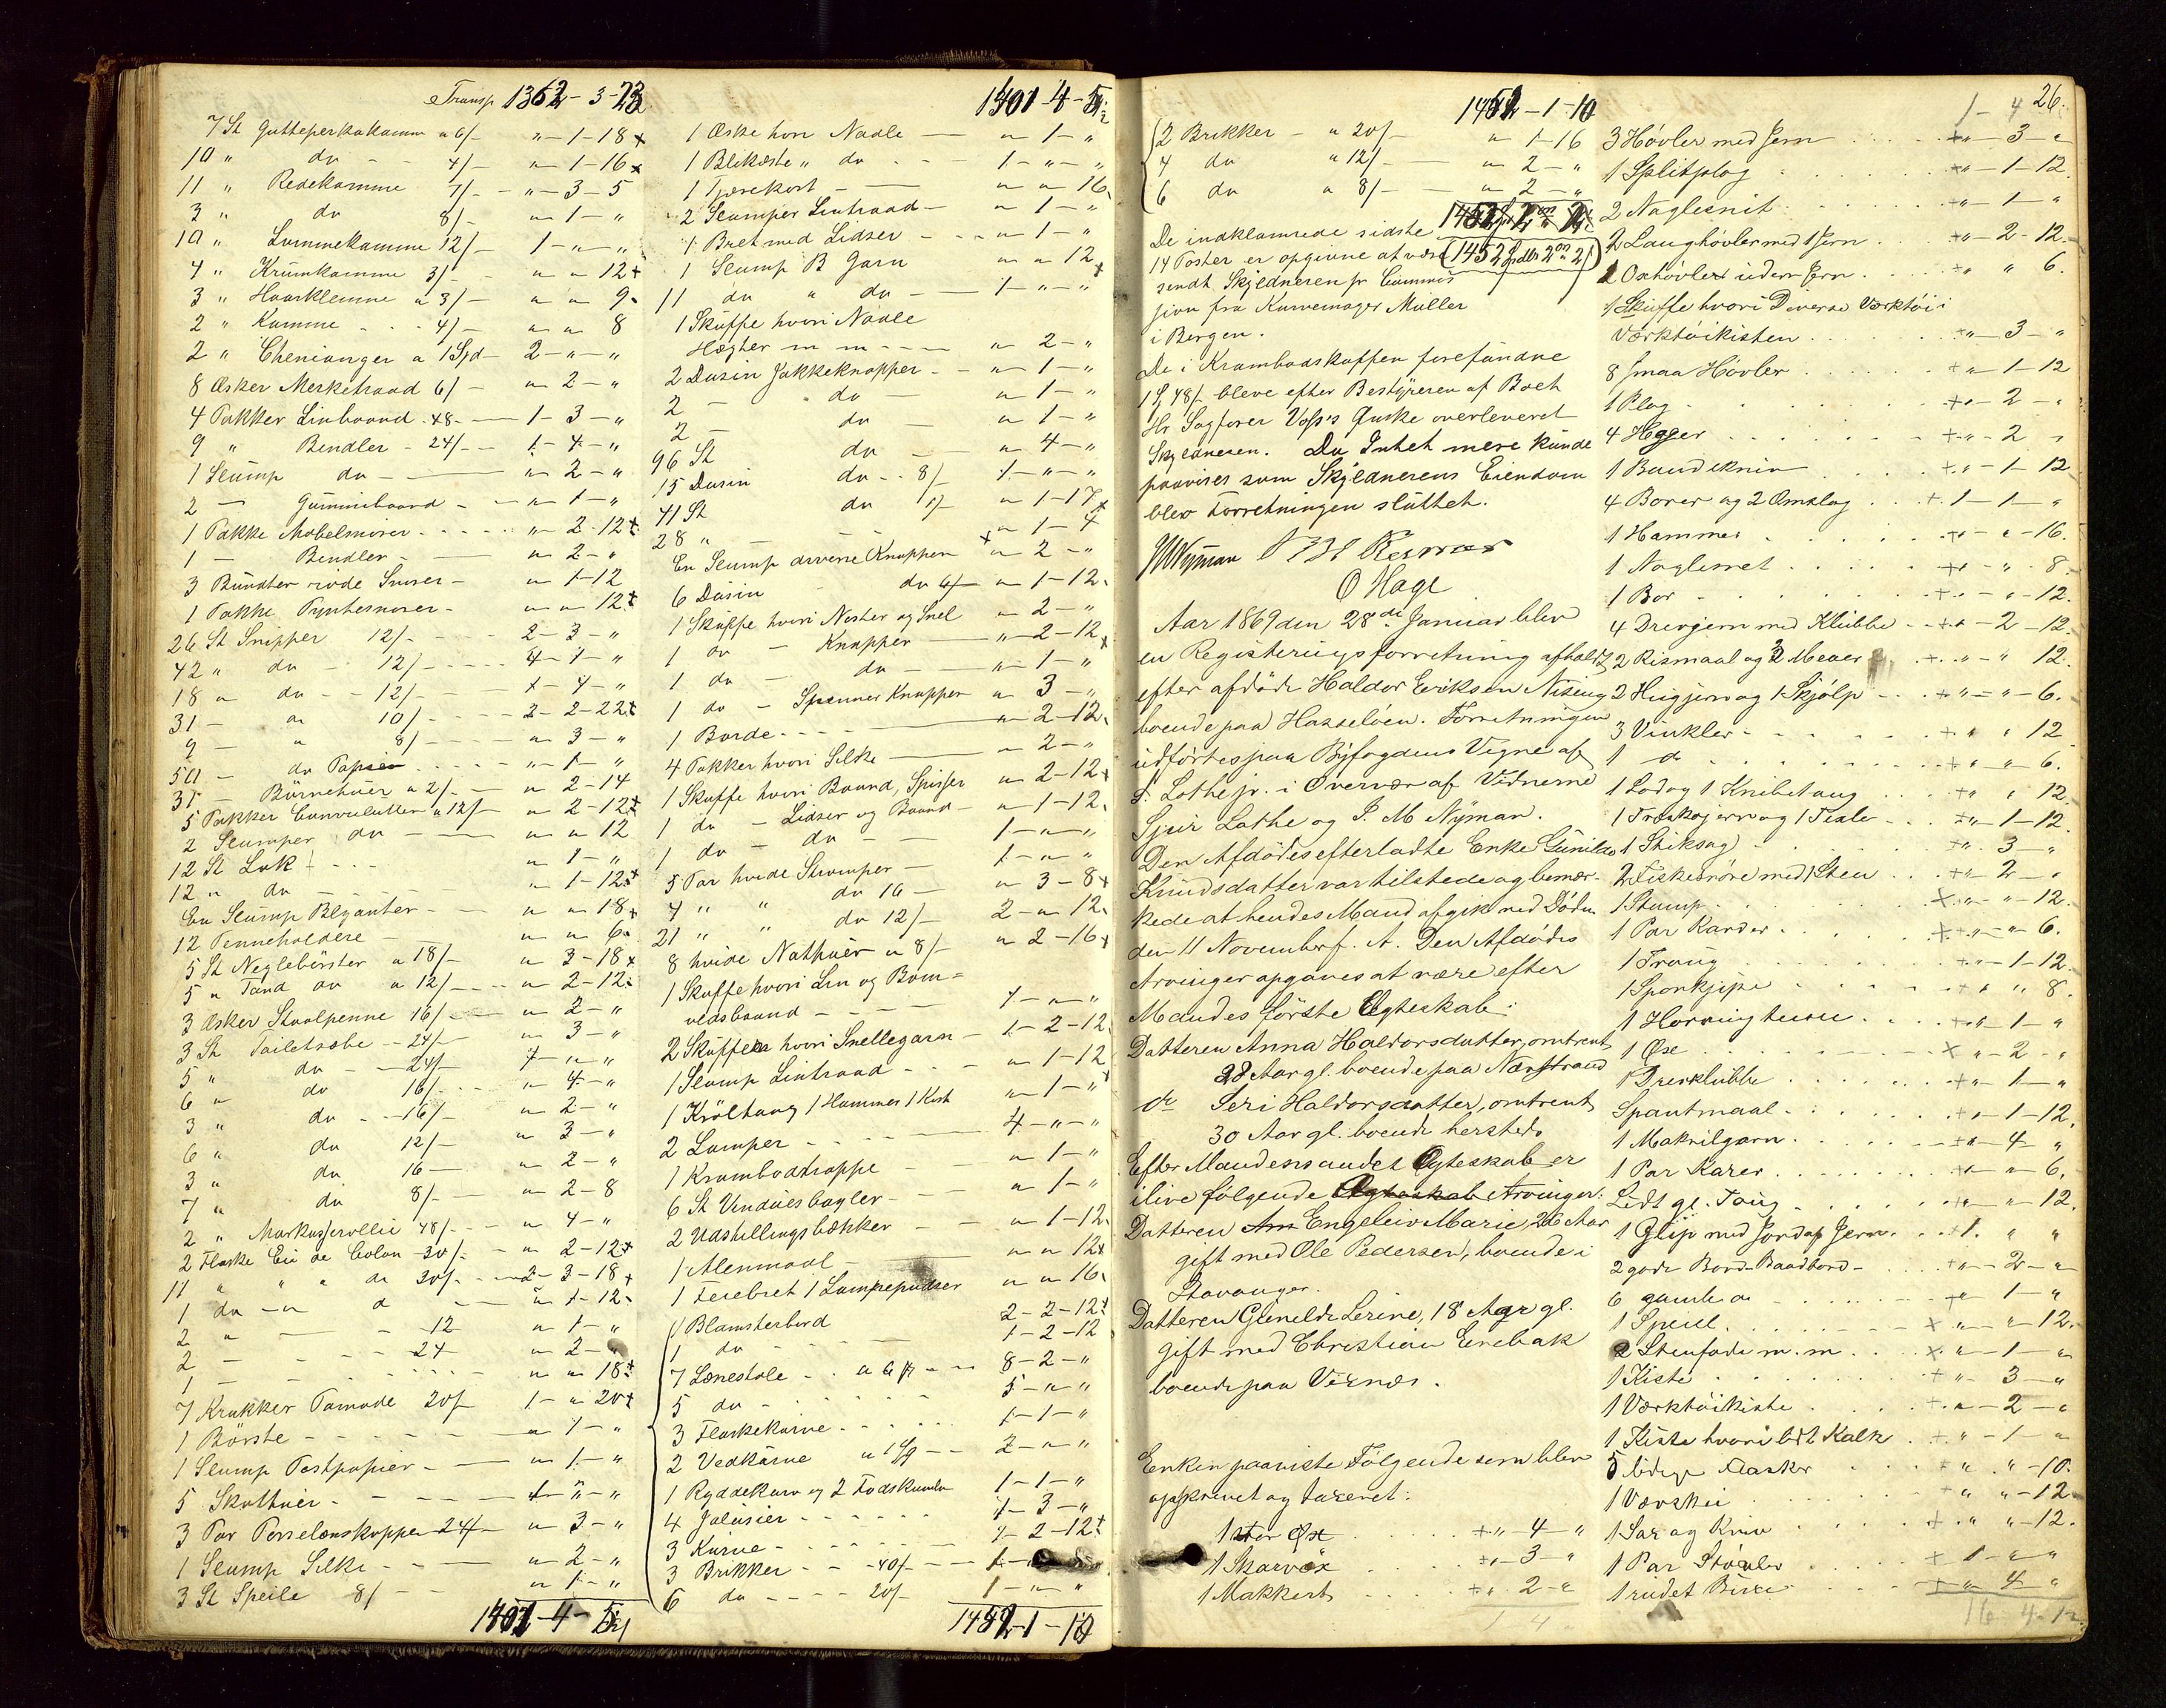 Transp 1362-3-23
7 St Guttaperkakamme a 6/- " - 1 - 18
10 " do - - 4/- " - 1 - 16
11 " Redekamme 7/- " - 3 - 5
3 " do 8/- " 1 - "
10 " Lommekamme 12/- 1 - " - "
4 " Krumkamme 3/- " " 12
3 " Haarklemme a 3/- " " 9
2 " Kamme - - 4/- " " 8
2 " Chenianger a 1 Spd - 2 - " - "
8 Æsker Merketraad 6/- " 2 - "
4 Pakker Linbaand - 48 - 1 - 3 - "
9 " Bendler - 24/- 1 - 4 - "
1 Slump do - " 2 - "
2 - Gummibaand - " 1 - "
1 Pakke Møbelsnorer - - " - 2 - 12
1 - Bendler - " 2 - "
3 Bundter røde Snorer - " 1 - 12
1 Pakke Pyntesnorer - " " 12
26 St Snipper 12/- 2 - 3 - "
42 " do - 12/- 4 - 1 - "
18 " do - - 12/- 1 - 4 - "
31 - " 10/- 2 - 2 - 22
9 - " 8/- " 3 - "
50 - do Papir " - 1 - "
31 - Börnehuer a 2/- " 2 - 14
5 Pakker Convolutter a 12/- " 2 - 12
2 Slumper do - " " 12
12 St Lak - - - " 1 - "
12 " do " 1 - 12
En Slump Blyanter - " " 18
12 Penneholdere - " " 6
5 St Neglebörster a 18/- " 3 - 18
5 " Tand do a 12/- " 2 - 12
3 Æsker Staalpenne 16/- " 2 - "
3 St Toiletsæbe - 24/- " 3 - "
5 " do - - 24/- 1 - " "
6 " do 16/- " 4 - "
3 " do - - 16/- " 2 - "
6 " do 12/- " 3 - "
3 " do 16 - " 2 - "
7 " do 8/- " 2 - 8
2 " 48/- " 4 - "
2 Flaske Eau de Colon - 30/- " 2 - 12
11 " " " do 30/- 2 - 3 - 18
1 do - " d " 1 - 12
2 " - 12 " 1 - "
2 - - - 24 " 2 - "
1 - - " " 18
7 Krukker Pomade 20/- 1 - " 20
1 Börste - - - " 1 - "
1 Slump Postpapier - " 1 - "
5 Skothuer - - 1 - " - "
3 Par Porselænskopper 24/- " 3 - "
1 Slump Silke - - " 2 - "
3 St Speile 8/- - " 1 - "
1401-4-5
1401-4-5
1 Æske hvori Naale - " 1 - "
1 Blikæske " do - - 1 - " - "
1 Tjærekost - " " 16
2 Slumper Lintraad - " 1 - "
1 Bret med Lidser - - " 1 - "
1 Slump B Garn " " 12
11 do " do - 1 - " - "
1 Skuffe hvori Naale
Hægter m m - - - " 2 - "
2 Dusin Jakkeknapper - " 1 - "
2 - " do - " 1 - "
2 - do " 1 - "
96 St do - " 4 - "
15 Dusin do - - 8/- 1 - " - "
41 St do 1/- " 1 - 17
28 " - - " 1 - 4
En Slump diverse Knapper " 2 - "
6 Dusin do 6/- " 1 - 12
1 Skuffe hvori Nøster og Snel " 2 - "
1 do - Knapper - " 2 - 12
1 do - do - " 1 - "
1 do - Spænner Knapper " 3 - "
1 Borde - - - " 2 - 12
4 Pakker hvori Silke - " 2 - "
1 Skuffe hvori Baand, Spisser " 2 - 12
1 do - Lidser og Baand - " 1 - 12
1 do - do - 1 - " - "
5 Par hvide Strømper - 1 - " "
4 " " do 16 - " 3 - 8
21 " " do 12/- 2 - " 12
8 hvide Nathuer a 8/- " 2 - 16
1 Skuffe hvori Lin og Bom=
uldsbaand - - - 1 - " - "
2 Skuffer hvori Snellegarn - 1 - 2 - 12
1 Slump Lintraad - - - " 1 - 12
1 Krøltang 1 Hammer 1 Kost " 1 - "
2 Lamper - - - 4 - " - "
1 Krambodtrappe " 1 - "
6 St Vinduesbøgler - - " 1 - "
2 Udstillingsbækker - - " 1 - 12
1 Alenmaal - " " 12
1 Feiebret 1 Lampepudser " " 16
1 Blomsterbord 2 - 2 - 12
1 do - - 1 - 2 - 12
7 Lænestole - - a 6 - - 8 - 2 - "
5 do - - 5 - " "
3 Flaskekurve - - - 1 - 1 - "
2 Vedkurve a 1 Spd - - 2 - " - "
1 Ryddekurv og 2 Fodskamler 1 - 1 - "
4 Jalusier - - - 1 - 3 - "
3 Kurve - - - 1 - 2 - 12
3 Brikker - - 40/- 1 -
6 do - - - 20/- 1 - " - "
1452-1-10
1452-1-10
2 Brikker - a 20/- " 1 - 16
4 do " 12/- " 2 - "
6 do a 8/- " 2 - "
De indklamrede sidste
14 Poster er opgivne at være (1452 Spdlr 2 ort 2/)
sendt Skyldneren pr Commis
sjon fra Kurvemager Müller
i Bergen.
De i Krambodskuffen forefundne
1 S, 48/- bleve efter Bestyreren af Boet
Hr Sagfører Voss's Ønske overleveret
Skyldneren. Da Intet mere kunde
paavises som Skyldnerens Eiendom
blev Forretningen sluttet.
J M Nyman
O Hage
Aar 1869 den 28de Januar blev
en Registeringsforretning afholdt
efter afdöde Haldor Eriksen Nising
boende paa Hasseløen. Forretningen
udførtes paa Byfogdens Vegne af
S. Lothe jr. i Overvær af Vidnerne
Sjur Lothe og J. M Nyman.
Den Afdödes efterladte Enke Gunilde
Knudsdatter var tilstede og bemær-
kede at hendes Mand afgik ved Döden
den 11 November f. A. Den Afdödes
Arvinger opgaves at være efter
Mandes förste Ægteskab:
Datteren Anna Haldorsdatter, omtrent
28 Aar gl. boende paa Nærstrand
do Seri Haldorsdatter, omtrent
30 Aar gl. boende hersteds
Efter Mandens andet Ægteskab er
ilive følgende Ægteskab Arvinger:
Datteren Am Engeleiv Marie, 26 Aar
gift med Ole Pedersen, boende i
Stavanger.
Datteren Gunilde Serine, 18 Aar gl.
gift med Christian Enebak
boende paa Visnæs.
Enken paaviste Følgende som blev
opskrevet og taxeret:
1 stor Øx " - 4 - "
1 Skarvöx " - 3 - "
1 Makkert " 2 - "
1 4 "
26.
1 - 4
3 Høvler med Jern " - 3 - "
1 Splitplog " - 1 - 12
2 Naglesnit " - 1 - "
2 Langhövler med 1 Jern " - 2 - 12
1 Oxhövler uden Jern " " 6.
1 Skuffe hvori Diverse Værktöi i
Værktöikisten " - 3 - "
8 smaa Hövler " - 1 - 12
1 Plog " - 2 - "
4 Hegger " - 2 "
1 Baandkniv " - 1 - 12
4 Borer og 2 Omslag 1 - 1 - "
1 Hammer " - " - 16.
1 Naglesnet " - " - 8.
1 Bor " - " - 12.
4 Drevjern med Klubbe " - 2 - 12.
2 Rismaal og 2 Meier " - " 12.
2 Hugjern og 1 Skjölp " - " - 6.
3 Vinkler " " 12
1 do " " - 6.
1 Lod og 1 Knibetang " " 12.
1 Froskojern og 1 Texle " - 1 - 12.
1 Stiksag " - 3 - "
2 Fiskesnöre med 1 Sten " - 2 - "
1 Stamp " - " - 12.
1 Par Karder " - " 6.
1 Traug " - 1 - 12.
1 Sponkjipe " " 8.
1 Horninghuse " - 1 - "
1 Øse " - 2 - "
1 Drevklubbe " - 1 - "
Spantmaal " - 1 - 12.
1 Makrilgarn " - 4 "
1 Par Karer " - " 6.
Lidt gl. Toug " - " 12.
1 Glip med Jord og Jern 1. " "
2 gode Bord - Baadbord " - 2 - "
6 gamle do " 1 - "
1 Speiel " - " 12.
2 Stenfade m. m. " - 1 - "
1 Kiste " - 3 - "
1 Værktöikiste " - 2 - "
1 Kiste hvori lidt Kalk " - 1 - "
5 ledige Flasker " - " - 10.
1 Vævskei " " - 12
1 Sax og Kniv " " - 12.
1 Par Stövler 1 - " "
1 rudet " 4 "
16 4 - 12.